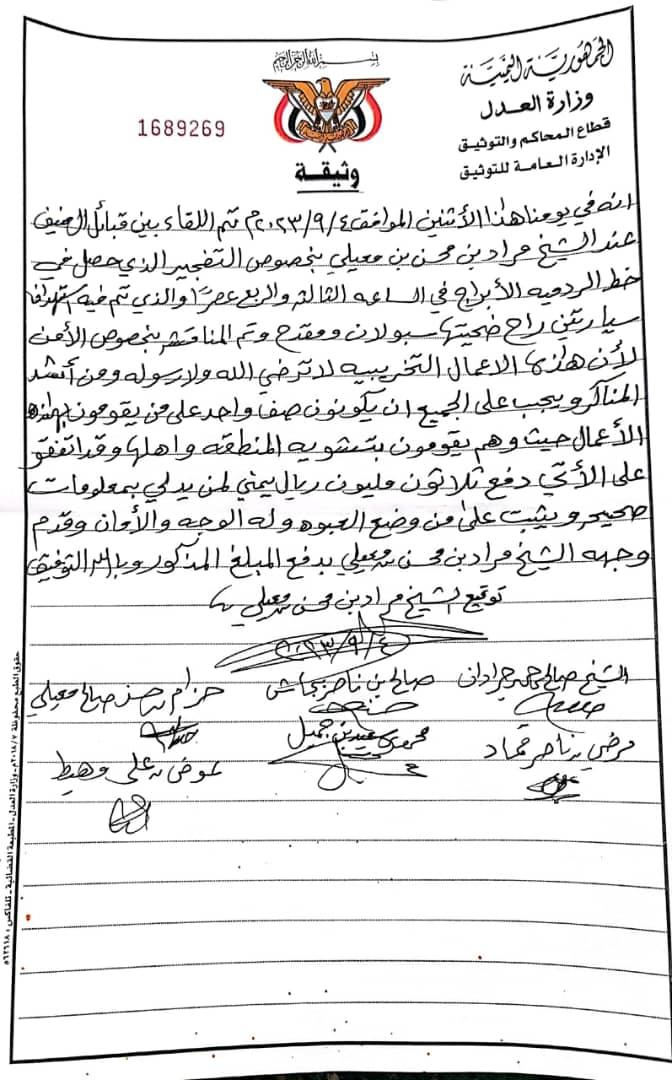 بسم الله الرحمن الرحيم
الجمهورية اليمنية
وزارة العدل
قطاع المحاكم والتوثيق
الإدارة العامة للتوثيق
1689269
وثيقة
انه في يومنا هذا الأثنين الموافق ٢٠٢٣/٩/٤م تم اللقاء بين قبائل
عند الشيخ مراد بن محسن بن معيلي بخصوص التفجير الذي حصل في
خط الردميه الأبراج في الساعه الثالثه والربع عصراً والذي تم فيه استهداف
سيارتين راح ضحيتها سبولان ومقدح وتم المناقشه بخصوص الأمن
لأن هذه الاعمال التخريبيه لا ترضي الله ولا رسوله ومن أشد
المناكر ويجب على الجميع ان يكونون صف واحد على من يقومون بهذه
الأعمال حيث وهم يقومون بتشويه المنطقه واهلها وقد اتفقو
على الأتي دفع ثلاثون مليون ريال يمني لمن يدلي بمعلومات
صحيحه ويثبت على من وضع العبوه وله الوجه والأمان وقدم
وجهه الشيخ مراد بن محسن بن معيلي بدفع المبلغ المذكور وبالله التوفيق
توقيع الشيخ مراد بن محسن بن معيلي
٢٠٢٣/٩/٤
الشيخ صالح حمد جرادان
صالح بن ناصر بحاش
حزام بن حسن صالح معيلي
مرضي بن ناصر حماد
سعيد بن جميل
عوض بن علي وهيط
حقوق الطبع محفوظة ٢٠١٨/٧م - وزارة العدل - المطبعة القضائية - تلفاكس